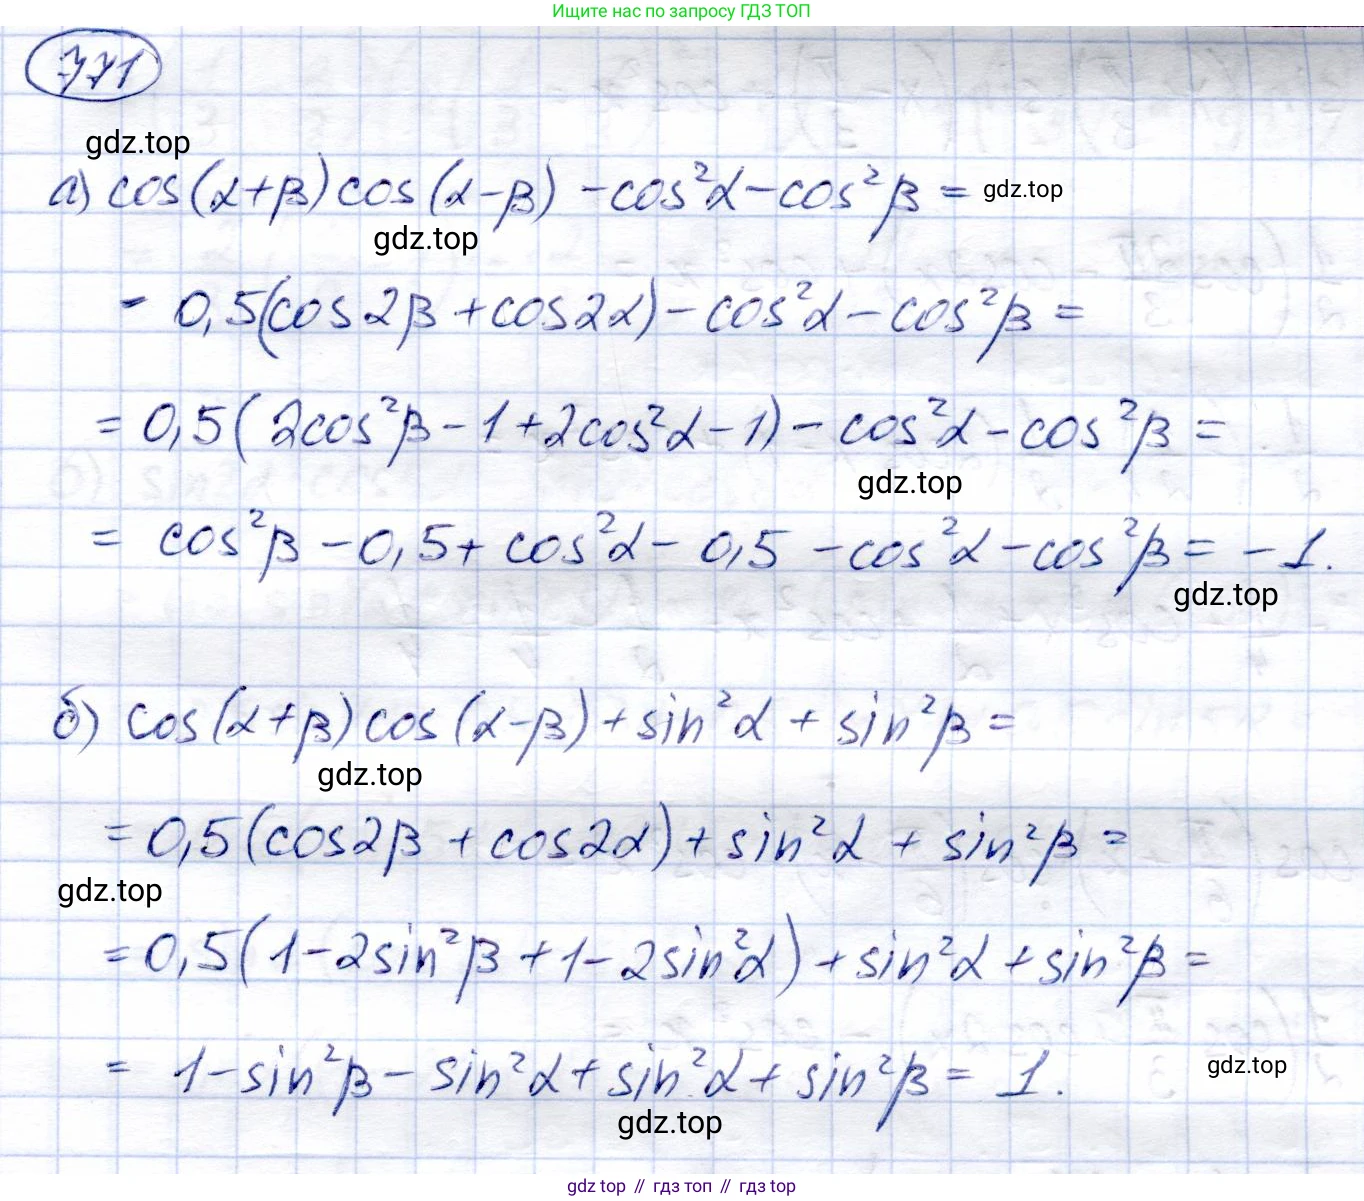 Ищите нас по запросу ГДЗ ТОП
771
gdz.top
а) cos(α+β)cos(α-β) -cos²α-cos²β = gdz.top
gdz.top
- 0,5(cos2β+cos2α)-cos²α-cos²β =
= 0,5(2cos²β-1+2cos²α-1)-cos²α-cos²β =
gdz.top
= cos²β-0,5+cos²α-0,5-cos²α-cos²β = -1.
gdz.top
б) cos(α+β)cos(α-β)+sin²α+sin²β =
gdz.top
= 0,5(cos2β+cos2α)+sin²α+sin²β =
gdz.top
= 0,5(1-2sin²β+1-2sin²α)+sin²α+sin²β =
= 1-sin²β-sin²α+sin²α+sin²β = 1.
gdz.top
gdz.top
gdz top // гдз топ // gdz top